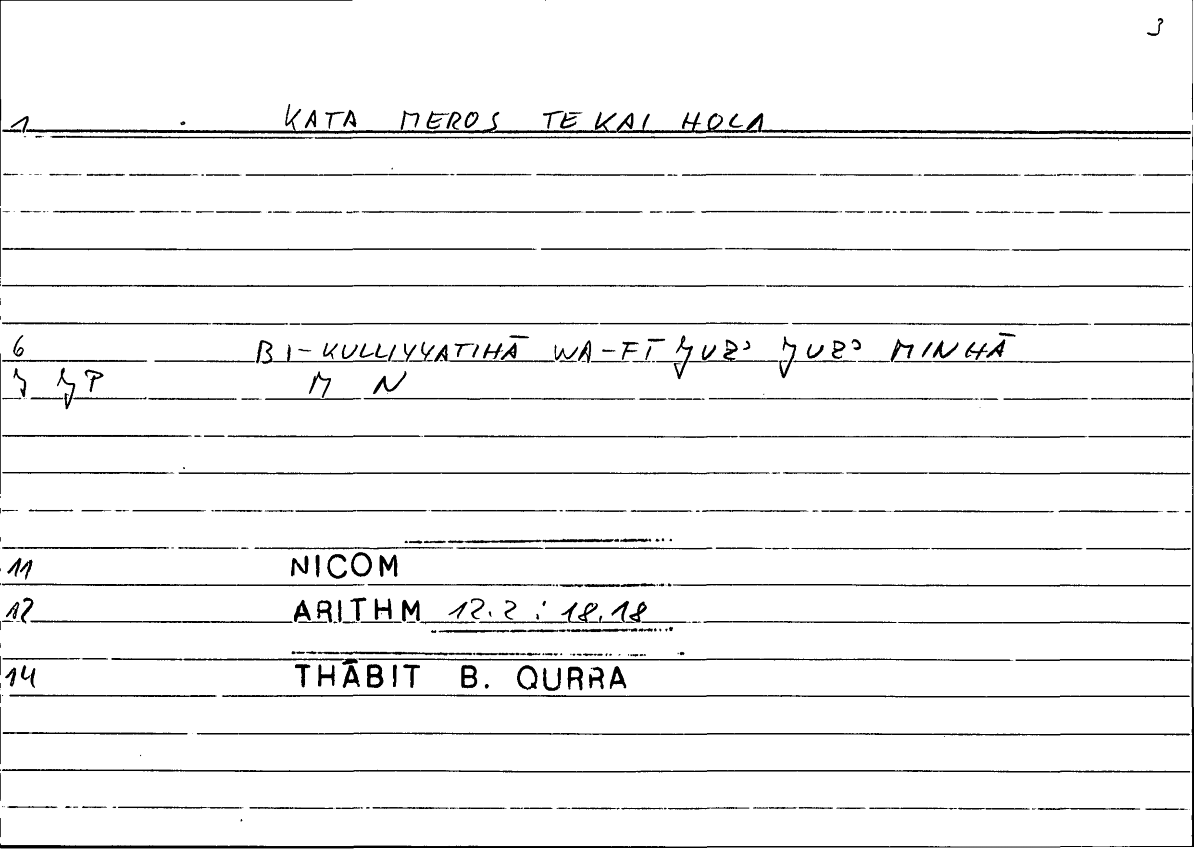 3
1 KATA MEROS TE KAI HOLA
6 BI-KULLIYYATIHĀ WA-FĪ ǦUZʾ ǦUZʾ MINHĀ
7 ǦP M N
11 NICOM
12 ARITHM 12.2 ; 18.18
14 THĀBIT B. QURRA